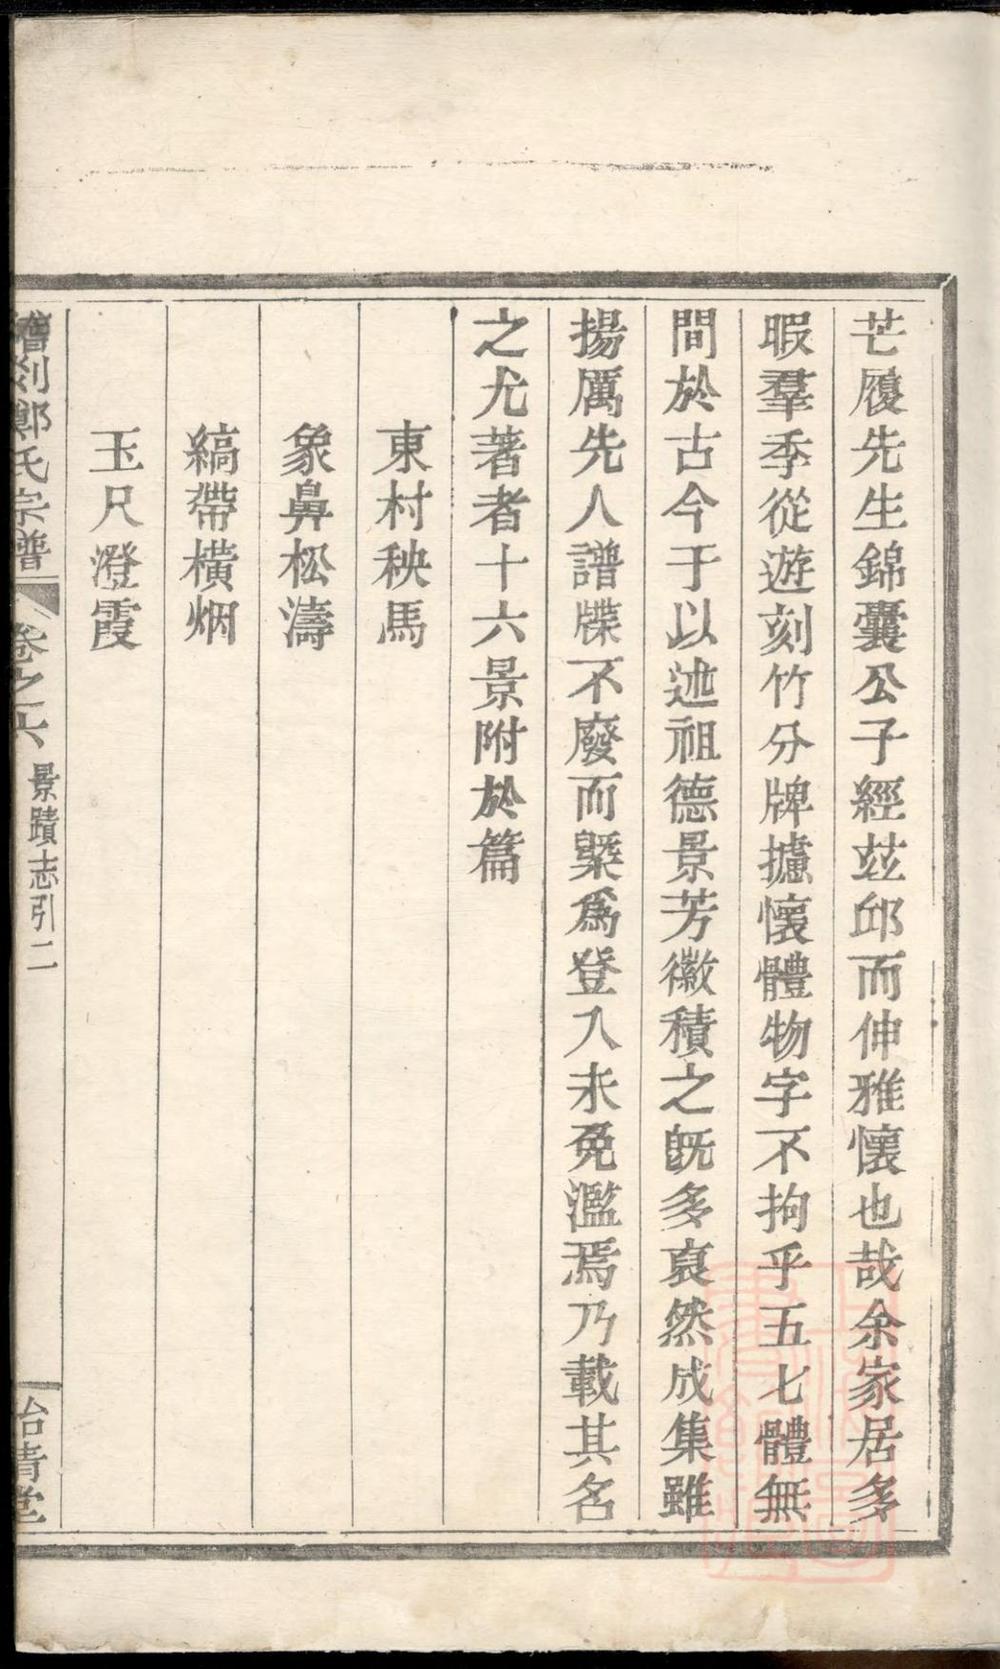 芒履先生錦囊公子經玆邱而伸雅懷也哉余家居多
暇羣季從遊刻竹分牌攄懷體物字不拘乎五七體無
間於古今于以述祖德景芳徽積之既多裒然成集雖
揚厲先人譜牒不廢而槩爲登入未免濫焉乃載其名
之尤著者十六景附於篇
東村秧馬
象鼻松濤
縞帶橫烟
玉尺澄霞
剡鄭氏宗譜
卷之六
景蹟志引二
青堂